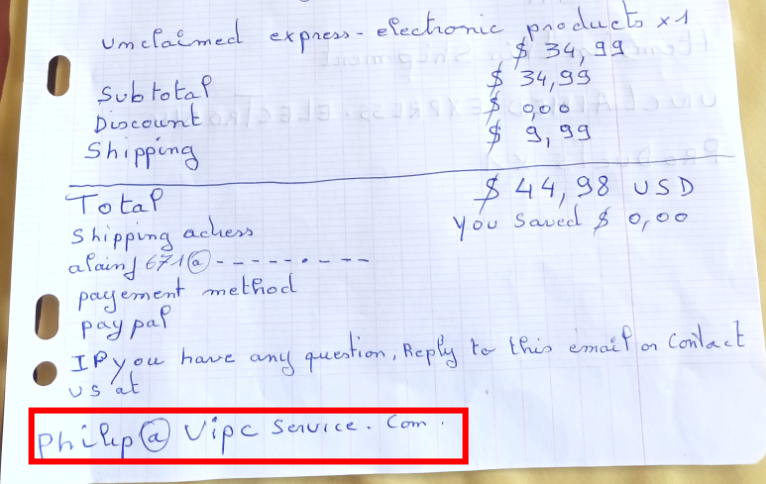 unclaimed express-electronic products x1
$ 34,99
Subtotal $ 34,99
Discount $ 0,00
Shipping $ 9,99
Total $ 44,98 USD
You saved $ 0,00
Shipping adress
alainj671@---------
payement method
paypal
If you have any question, Reply to this email or Contact
us at
Philip@Vipcservice.com.